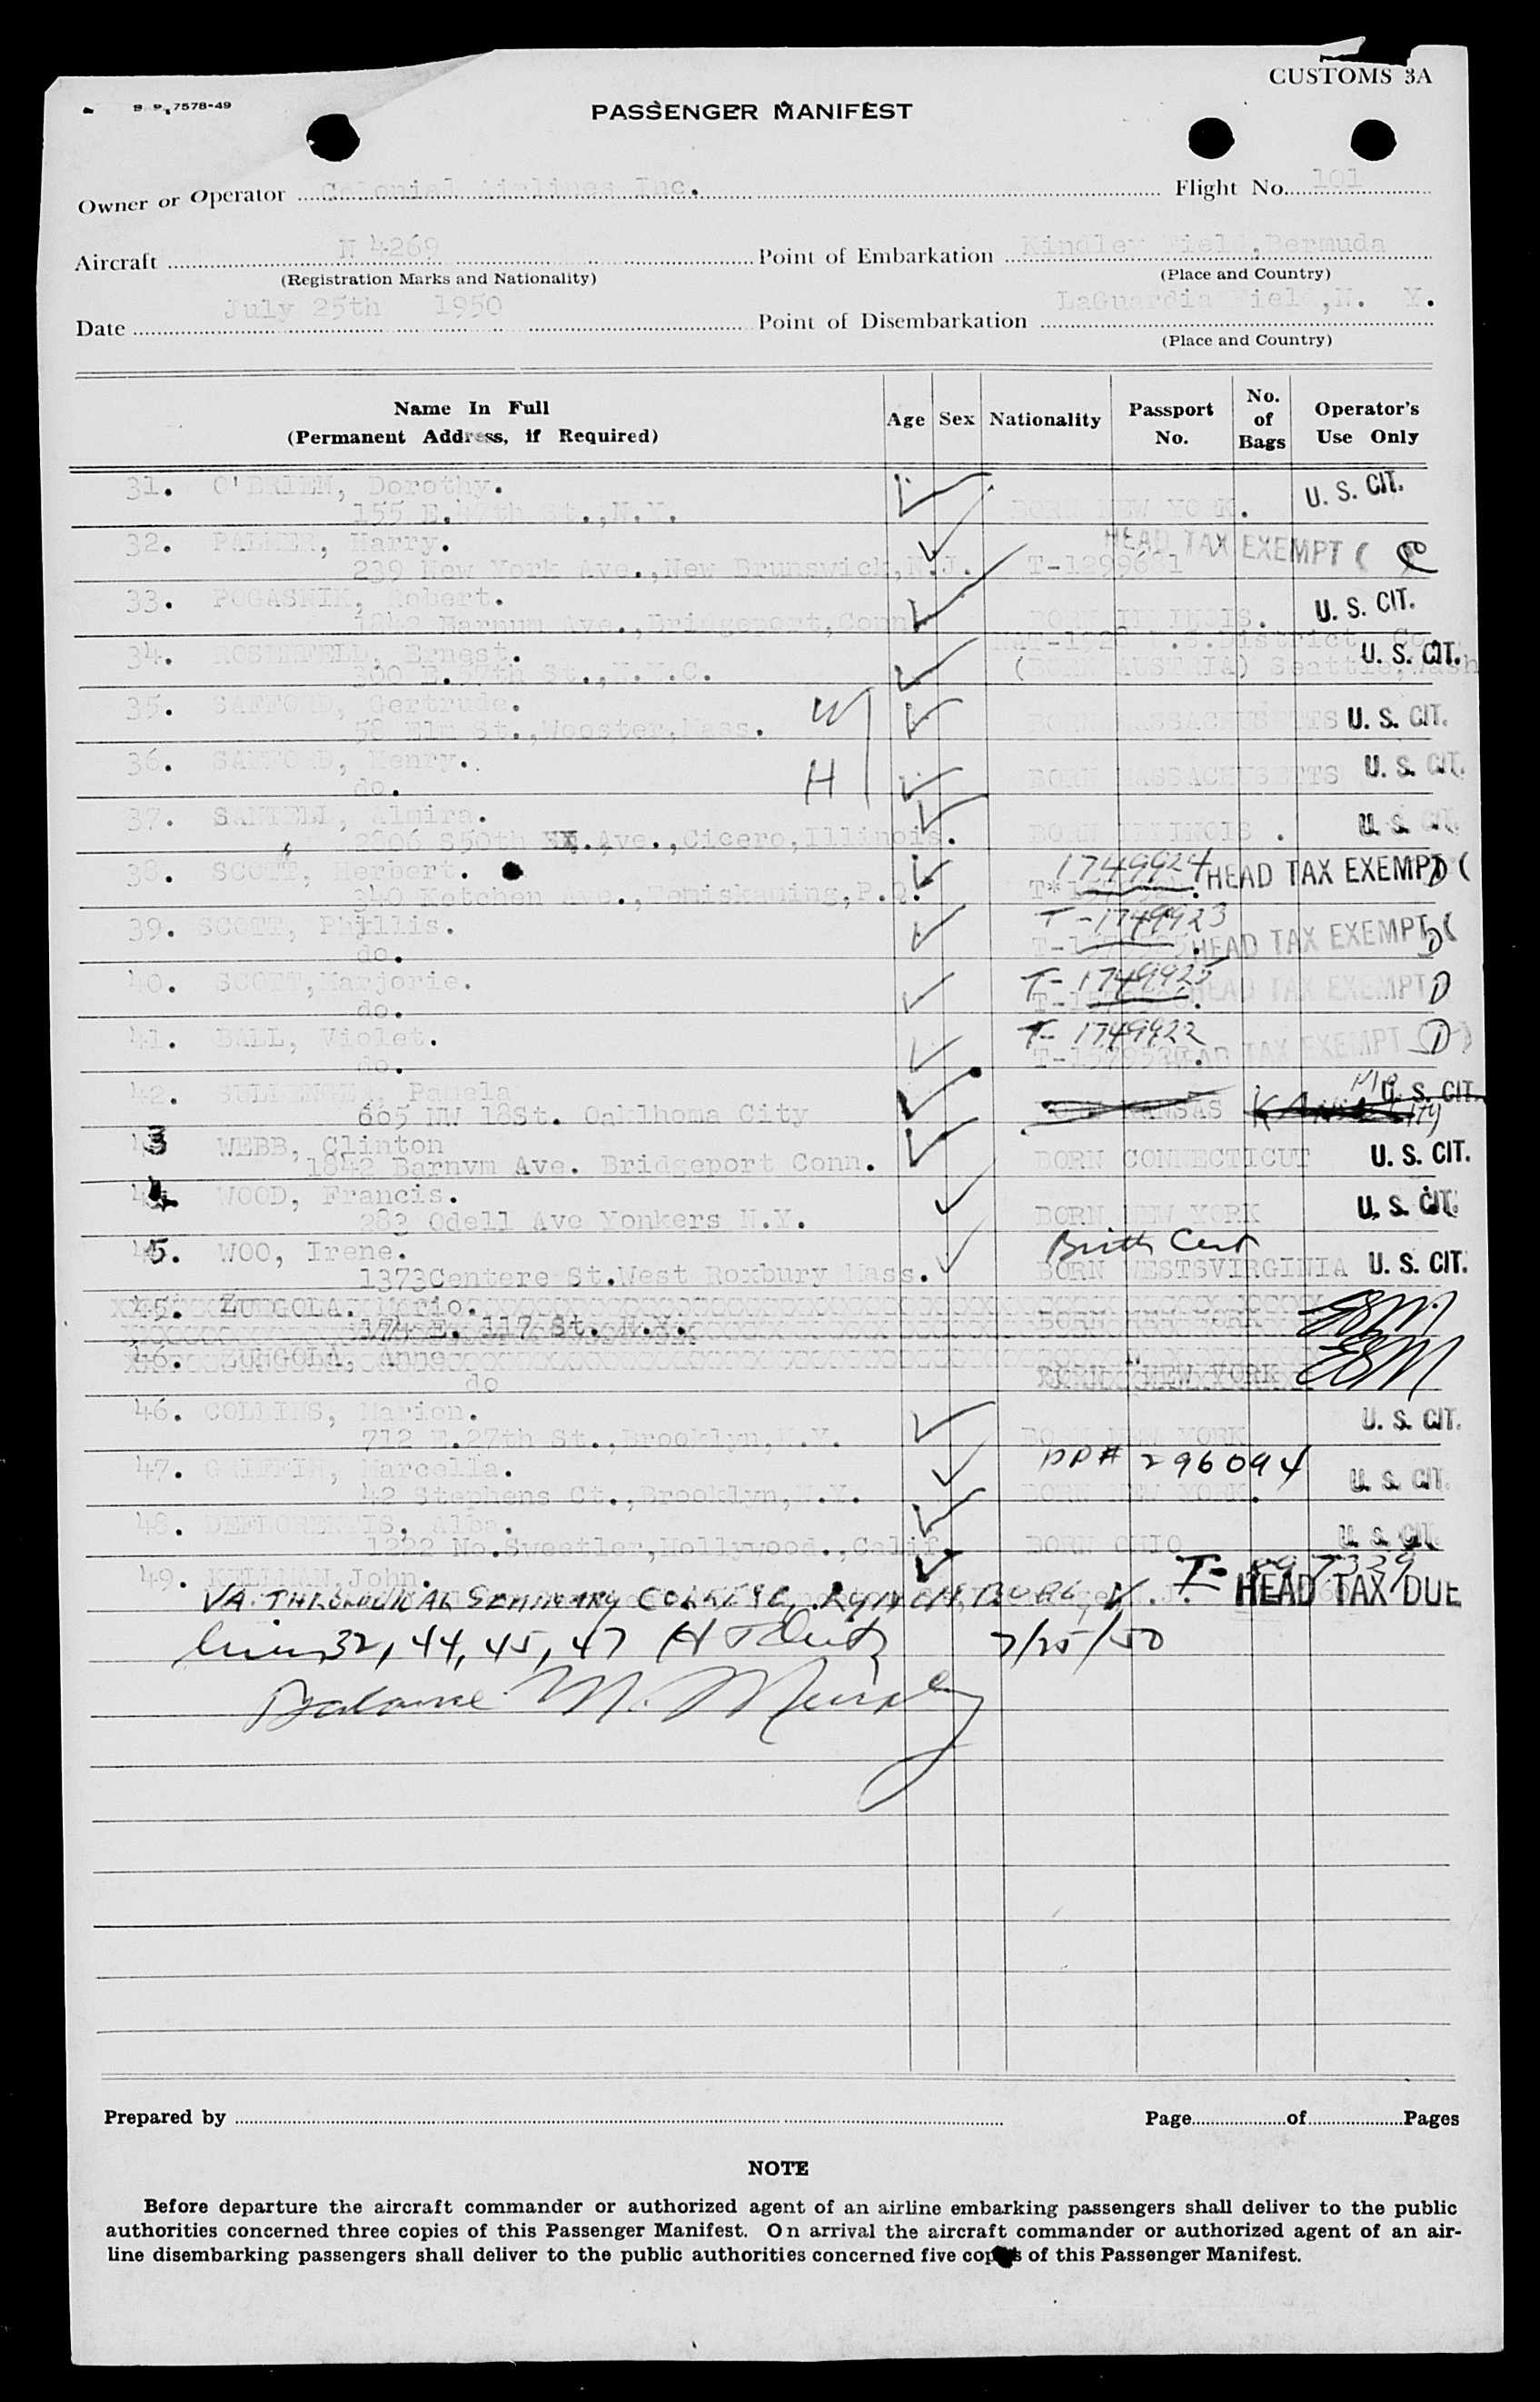 CUSTOMS 3A
B P. 7578-49
PASSENGER MANIFEST
Owner or Operator Colonial Airlines Inc. Flight No. 101
Aircraft N 4269 Point of Embarkation Kindley Field, Bermuda
(Registration Marks and Nationality) (Place and Country)
Date July 25th 1950 Point of Disembarkation LaGuardia Field, N. Y.
(Place and Country)
Name In Full Age Sex Nationality Passport No. No. of Bags Operator's Use Only
(Permanent Address, if Required)
31. O'BRIEN, Dorothy. U. S. CIT.
155 E. 47th St., N.Y. BORN NEW YORK.
32. PALMER, Harry. HEAD TAX EXEMPT (
239 New York Ave., New Brunswick, N.J. T-1299681
33. POGASNIK, Robert. U. S. CIT.
1842 Barnum Ave., Bridgeport, Conn BORN ILLINOIS.
34. Ernest. NAT-192 U.S. District Co. U. S. CIT.
300 E. 57th St., N.Y.C. (BORN AUSTRIA) Seattle, Wash
35. SAFFORD, Gertrude. W
58 Elm St., Wooster, Mass. BORN MASSACHUSETTS U. S. CIT.
36. SAFFORD, Henry. H
do. BORN MASSACHUSETTS U. S. CIT.
37. SANTELL, Almira.
2806 S50th Ave., Cicero, Illinois. BORN ILLINOIS. U. S. CIT.
38. SCOTT, Herbert. 1749924 HEAD TAX EXEMPT D (
340 Ketchen Ave., Temiskaming, P.Q.
39. SCOTT, Phyllis. T-1749923
do. HEAD TAX EXEMPT D (
40. SCOTT, Marjorie. T-1749925
do. HEAD TAX EXEMPT D
41. BALL, Violet. T-1749922
do. HEAD TAX EXEMPT (D)
42. Pamela U. S. CIT.
605 NW 18St. Oaklhoma City KANSAS Kansas City
43 WEBB, Clinton
1842 Barnvm Ave. Bridgeport Conn. BORN CONNECTICUT U. S. CIT.
44 WOOD, Francis.
283 Odell Ave Yonkers N.Y. BORN NEW YORK U. S. CIT.
45. WOO, Irene. Birth Cert
1373Centere St.West Roxbury Mass. BORN WESTSVIRGINIA U. S. CIT.
45. ZUNGOLA. Mario.
174 E. 117 St. N.Y. BORN NEW YORK ESM
46. ZUNGOLA, Anne
do BORN NEW YORK ESM
46. COLLINS, Marion. U. S. CIT.
712 E.27th St., Brooklyn, N.Y. BORN NEW YORK
47. GRIFFIN, Marcella. PP# 296094
42 Stephens Ct., Brooklyn, N.Y. BORN NEW YORK. U. S. CIT.
48. DEFLORENTIS, Alba.
1222 No.Sweatler, Hollywood., Calif. BORN OHIO U. S. CIT.
49. KELLMAN, John. T-897339
VA. THEOLOGICAL SEMINARY COLLEGE, LYNCHBURG, V. HEAD TAX DUE
Lines 32, 44, 45, 47 7/25/50
M. Murphy
Prepared by Page of Pages
NOTE
Before departure the aircraft commander or authorized agent of an airline embarking passengers shall deliver to the public
authorities concerned three copies of this Passenger Manifest. On arrival the aircraft commander or authorized agent of an air-
line disembarking passengers shall deliver to the public authorities concerned five copies of this Passenger Manifest.